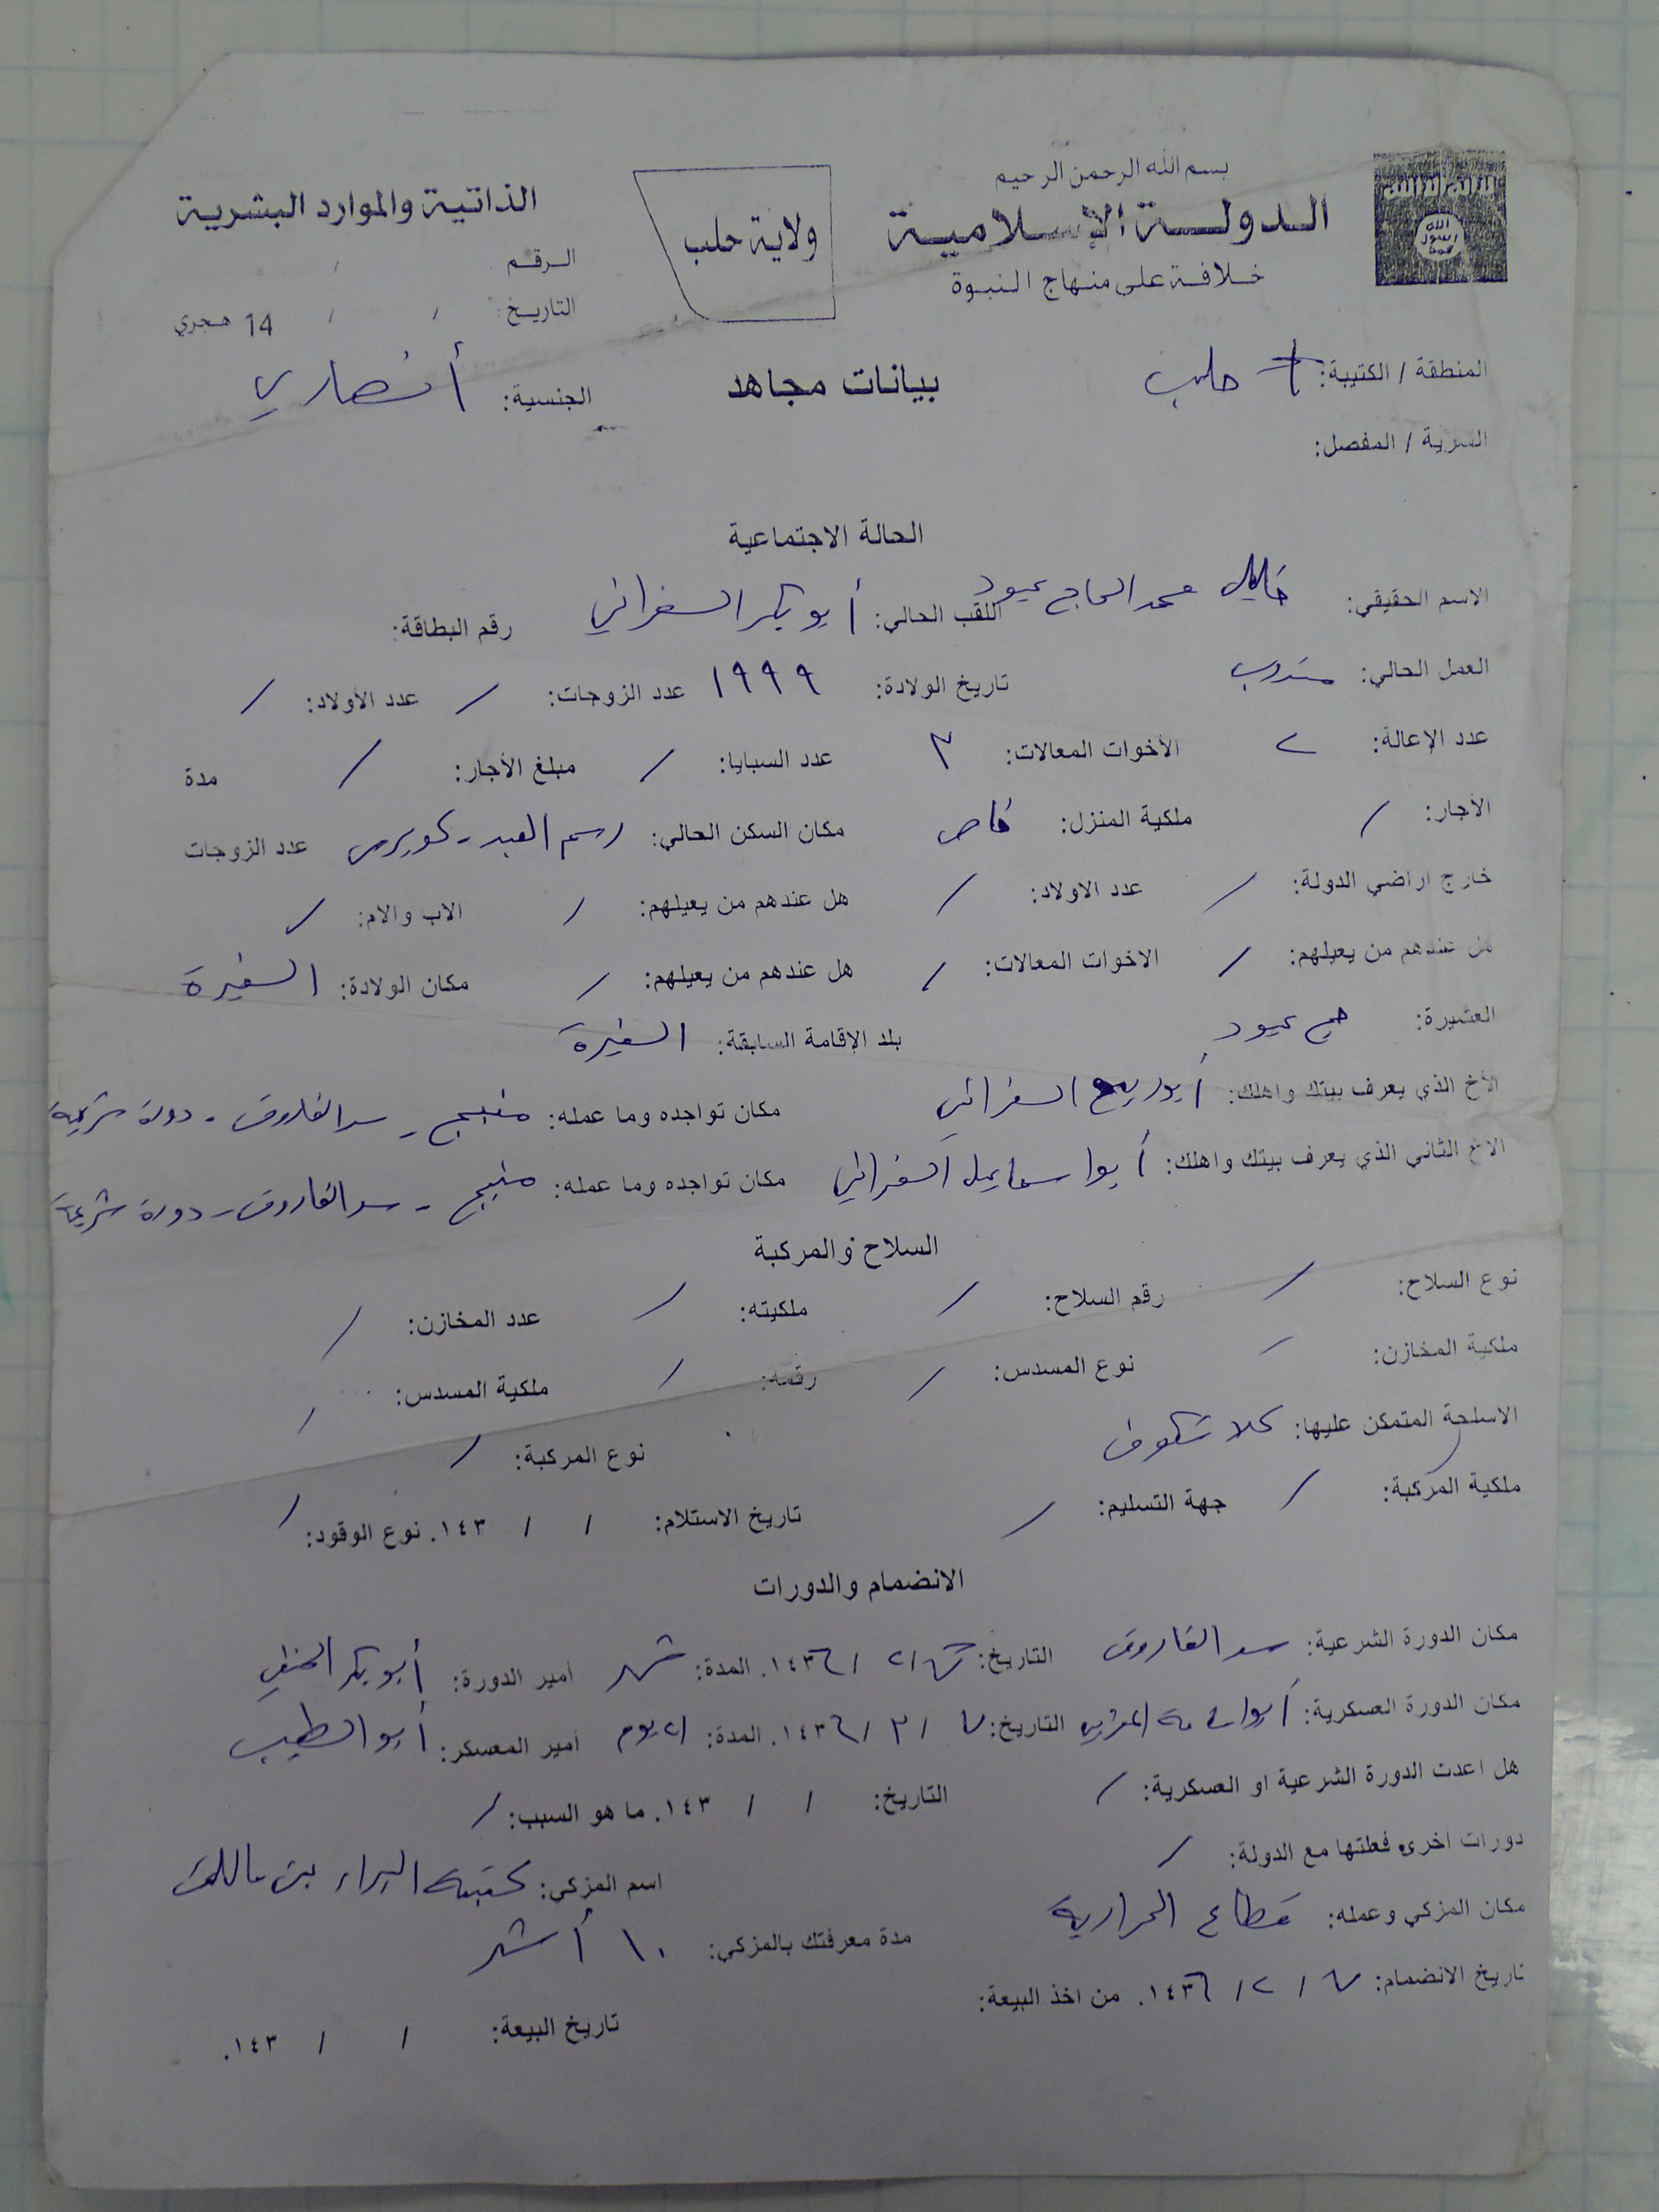 لا إله إلا الله
الله رسول محمد
بسم الله الرحمن الرحيم
الدولة الإسلامية
خلافة على منهاج النبوة
ولاية حلب
الذاتية والموارد البشرية
الرقم /
التاريخ: / / 14 هجري
المنطقة / الكتيبة: حلب
بيانات مجاهد
الجنسية: أنصاري
السرية / المفصل:
الحالة الاجتماعية
الاسم الحقيقي: خليل محمد الحاج عبود اللقب الحالي: أبو بكر السفراني رقم البطاقة:
العمل الحالي: منتدب تاريخ الولادة: ١٩٩٩ عدد الزوجات: / عدد الأولاد: /
عدد الإعالة: ٢ الأخوات المعالات: ٣ عدد السبايا: / مبلغ الأجار: / مدة
الأجار: / ملكية المنزل: خاص مكان السكن الحالي: رسم العبد - كويرس عدد الزوجات
خارج اراضي الدولة: / عدد الاولاد: / هل عندهم من يعيلهم: / الاب والام: /
هل عندهم من يعيلهم: / الاخوات المعالات: / هل عندهم من يعيلهم: / مكان الولادة: السفيرة
العشيرة: عبود بلد الإقامة السابقة: السفيرة
الأخ الذي يعرف بيتك واهلك: السفراني مكان تواجده وما عمله: منبج - سد الفاروق - دورة شرعية
الاخ الثاني الذي يعرف بيتك واهلك: أبو اسماعيل السفراني مكان تواجده وما عمله: منبج - سد الفاروق - دورة شرعية
السلاح والمركبة
نوع السلاح: / رقم السلاح: / ملكيته: / عدد المخازن: /
ملكية المخازن: / نوع المسدس: / رقمه: / ملكية المسدس: /
الاسلحة المتمكن عليها: كلاشنكوف نوع المركبة: /
ملكية المركبة: / جهة التسليم: / تاريخ الاستلام: / / ١٤٣. نوع الوقود: /
الانضمام والدورات
مكان الدورة الشرعية: سد الفاروق التاريخ: /٢/ ١٤٣٦. المدة: شهر أمير الدورة: أبو بكر الحنفي
مكان الدورة العسكرية: التاريخ: ٧ / ٣ / ١٤٣٦. المدة: ٢١ يوم أمير المعسكر: أبو الطيب
هل اعدت الدورة الشرعية او العسكرية: / التاريخ: / / ١٤٣. ما هو السبب: /
دورات اخرى فعلتها مع الدولة: /
اسم المزكي: كتيبة البراء بن مالك
مكان المزكي وعمله: قطاع الحرارية مدة معرفتك بالمزكي: ١٠ أشهر
تاريخ الانضمام: ٧ / ٢ / ١٤٣٦. من اخذ البيعة:
تاريخ البيعة: / / ١٤٣.